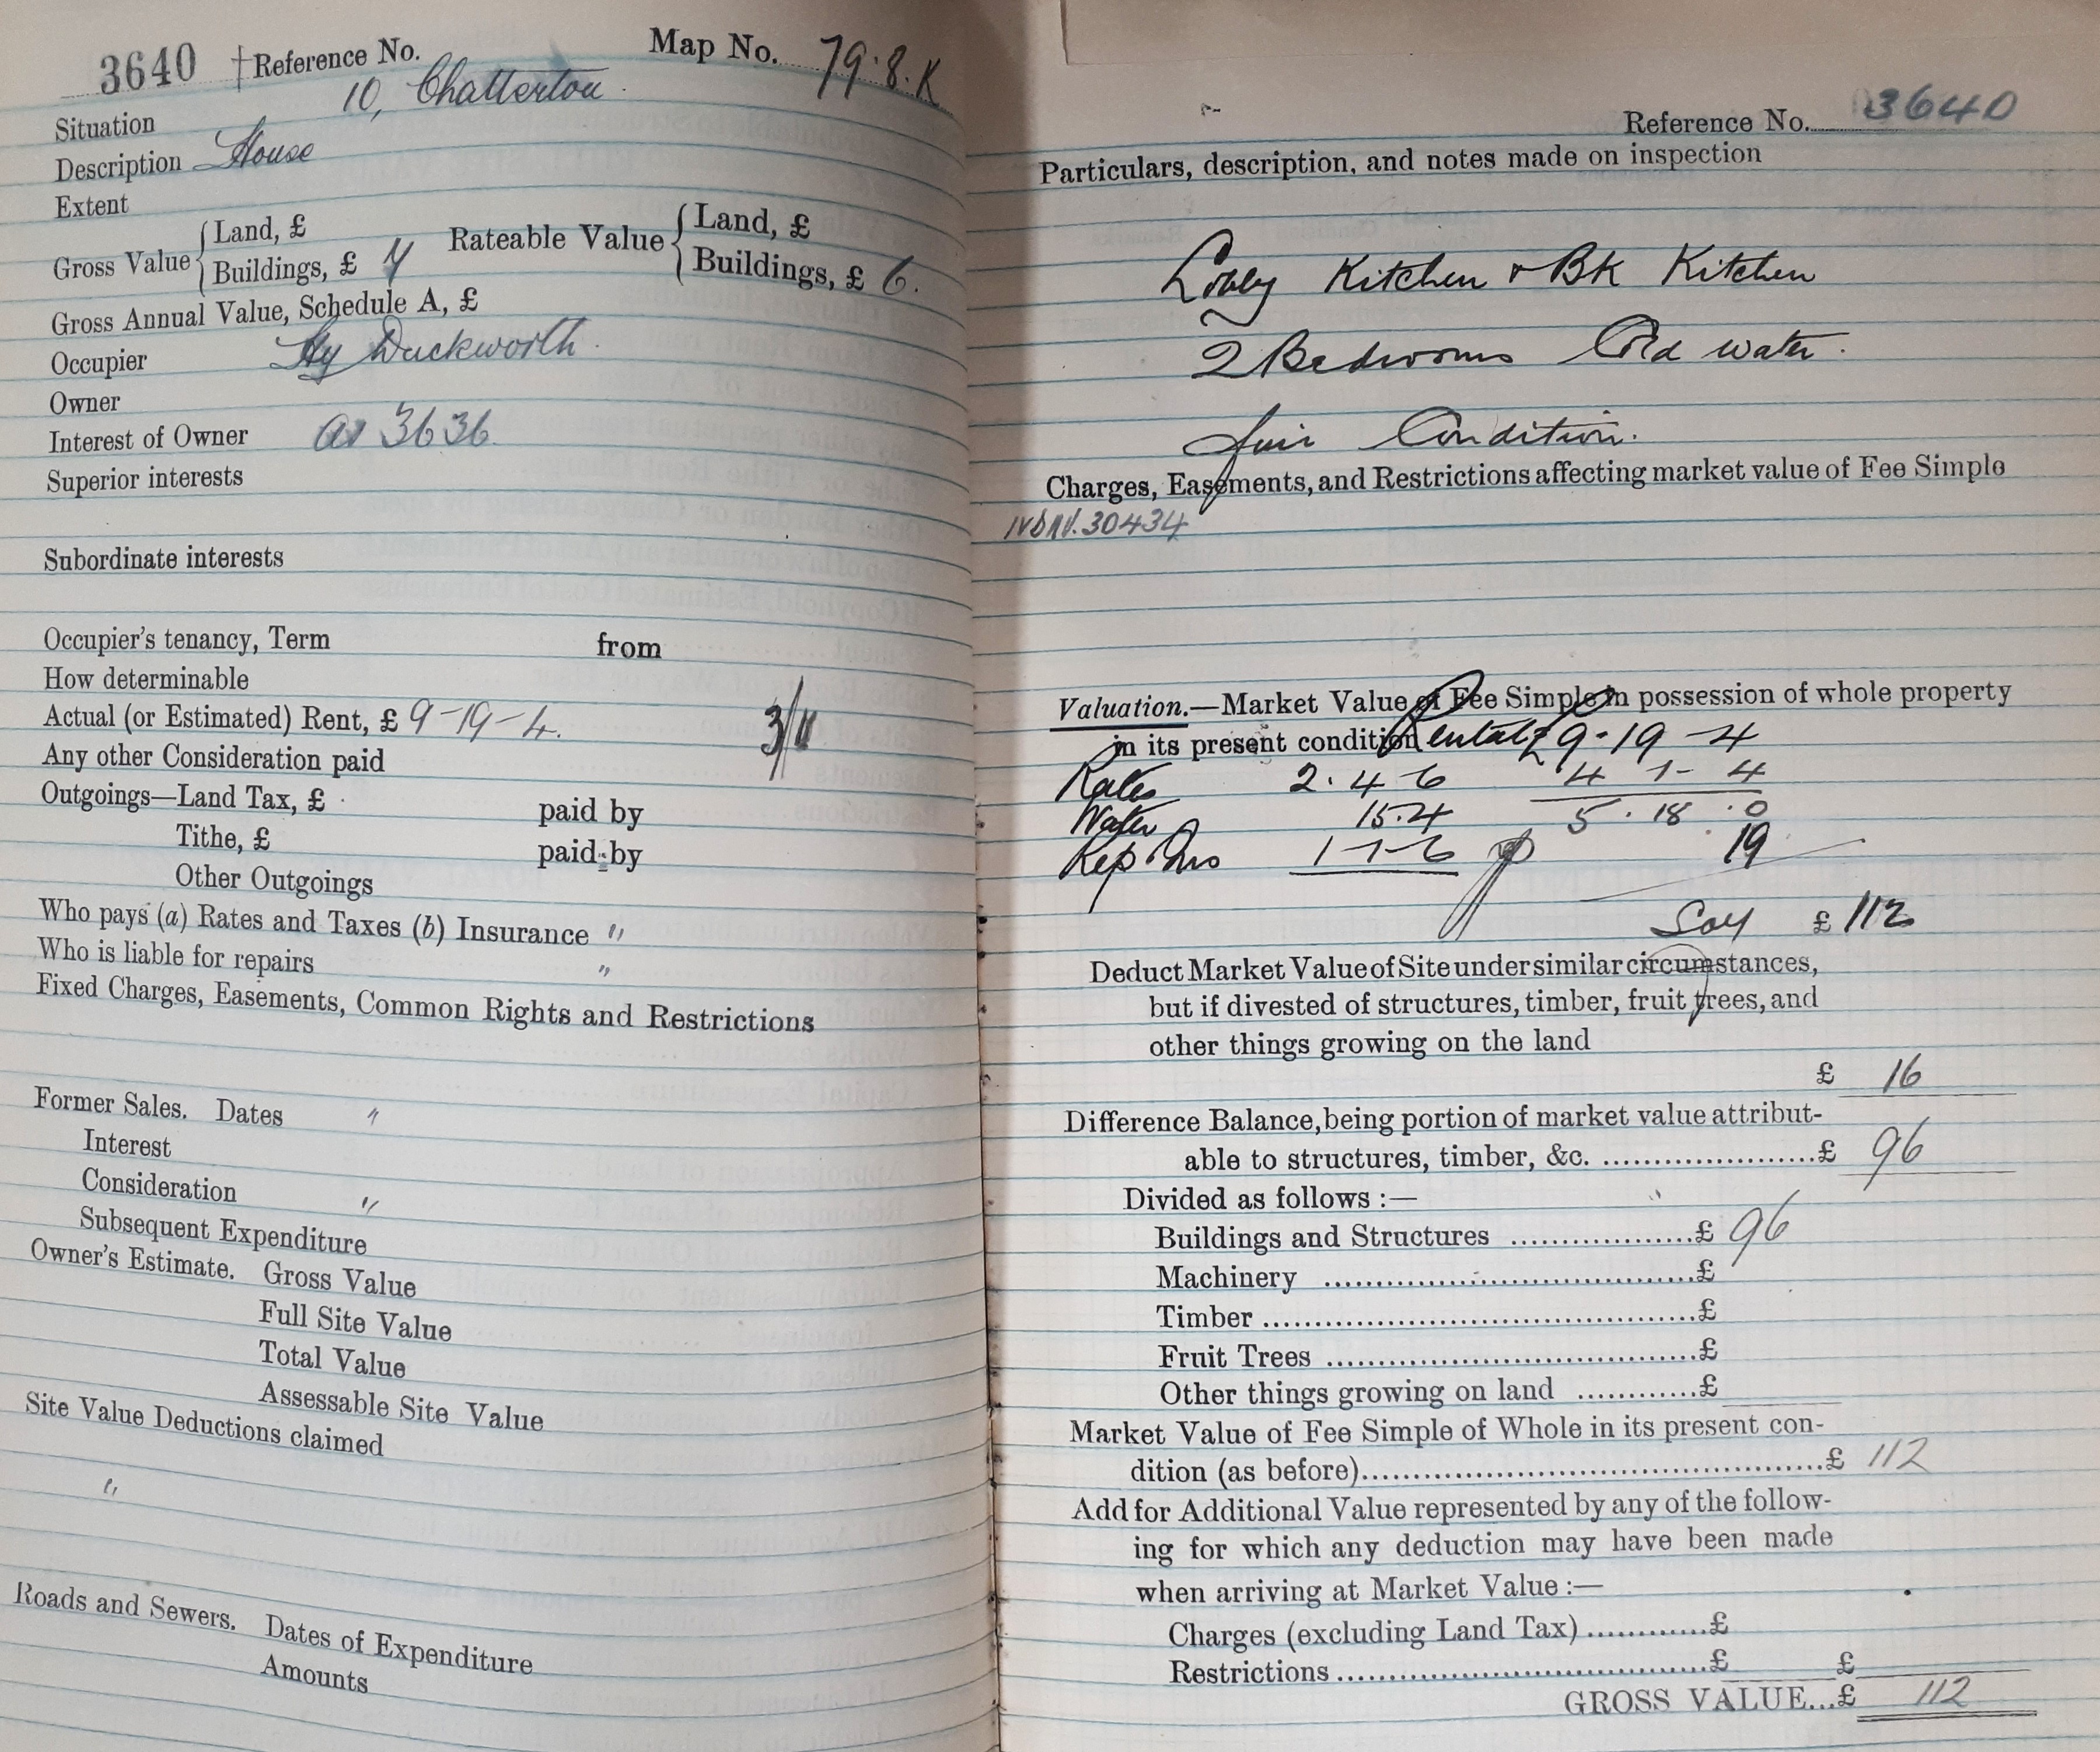 3640 †Reference No. Map No. 79.8.K
10, Chatterton
Situation
Description House
Extent
Gross Value { Land, £ Rateable Value { Land, £
Buildings, £ Buildings, £ 6.
Gross Annual Value, Schedule A, £
Occupier Hy Duckworth
Owner
Interest of Owner as 3636
Superior interests
Subordinate interests
Occupier's tenancy, Term from
How determinable
Actual (or Estimated) Rent, £ 9-19-4.
Any other Consideration paid
Outgoings—Land Tax, £ paid by
Tithe, £ paid by
Other Outgoings
Who pays (a) Rates and Taxes (b) Insurance "
Who is liable for repairs "
Fixed Charges, Easements, Common Rights and Restrictions
Former Sales. Dates "
Interest
Consideration "
Subsequent Expenditure
Owner's Estimate. Gross Value
Full Site Value
Total Value
Assessable Site Value
Site Value Deductions claimed
"
Roads and Sewers. Dates of Expenditure
Amounts
Reference No. 3640
Particulars, description, and notes made on inspection
Lobby Kitchen & Bk Kitchen
2 Bedrooms Cold water.
fair Condition.
Charges, Easements, and Restrictions affecting market value of Fee Simple
30434
Valuation.—Market Value of Fee Simple in possession of whole property
in its present condition Rental £9-19-4
Rates 2.4-6 4 1- 4
Water 15.4 5.18.0
Rep & Ins 1-1-6 19
Say £ 112
Deduct Market Value of Site under similar circumstances,
but if divested of structures, timber, fruit trees, and
other things growing on the land
£ 16
Difference Balance, being portion of market value attribut-
able to structures, timber, &c. ....................£ 96
Divided as follows :—
Buildings and Structures .................£ 96
Machinery ...................................£
Timber .......................................£
Fruit Trees ..................................£
Other things growing on land ............£
Market Value of Fee Simple of Whole in its present con-
dition (as before)...........................................£ 112
Add for Additional Value represented by any of the follow-
ing for which any deduction may have been made
when arriving at Market Value :—
Charges (excluding Land Tax) ............£
Restrictions ...................................£ £
GROSS VALUE...£ 112